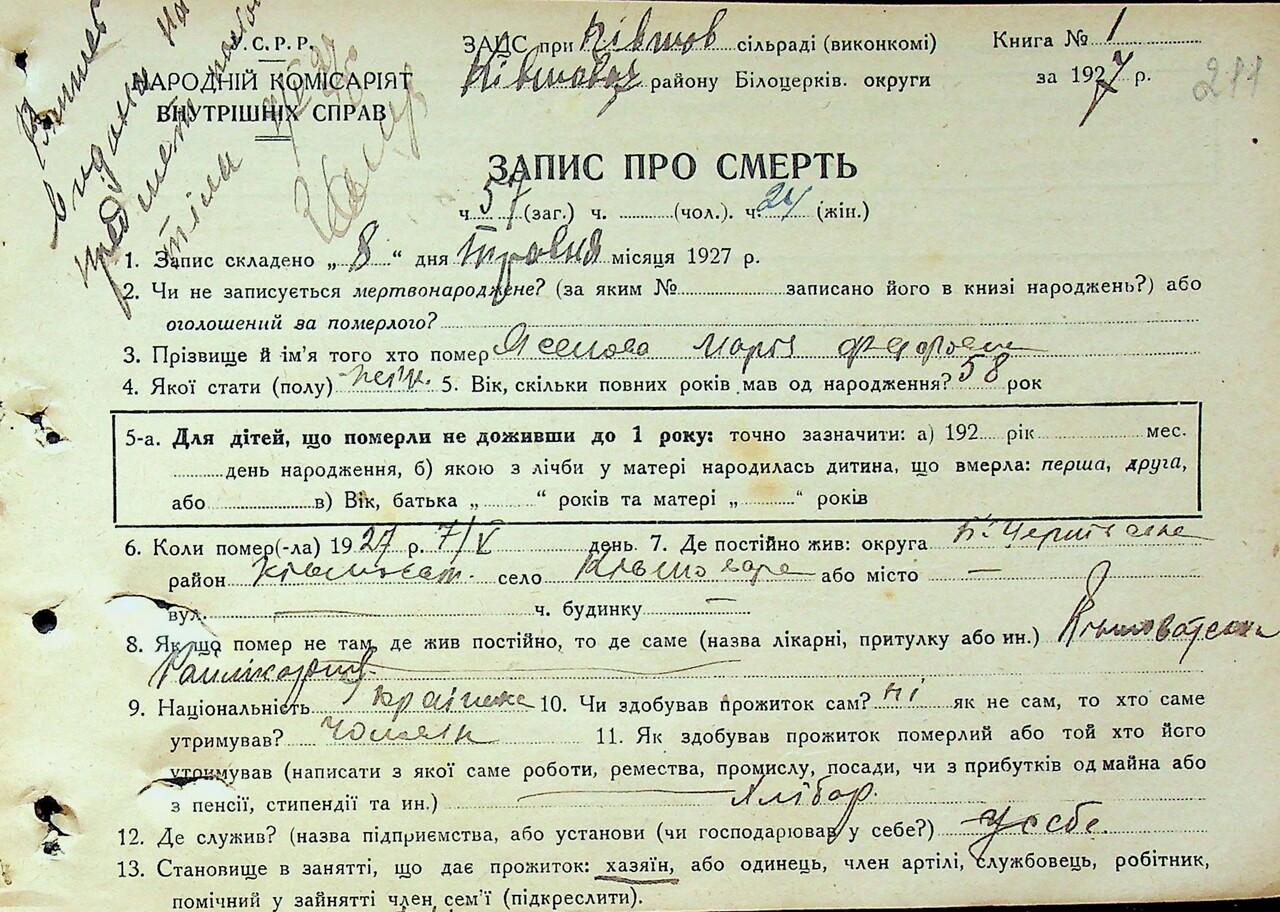 У.С.Р.Р.
НАРОДНІЙ КОМІСАРІЯТ
ВНУТРІШНІХ СПРАВ
ЗАЦС при Ківшов сільраді (виконкомі)
району Білоцерків. округи
Книга № 1
за 1927 р.
211
ЗАПИС ПРО СМЕРТЬ
ч. 57 (заг.) ч. (чол.). ч. 24 (жін.)
1. Запис складено „ 8 “ дня Травня місяця 1927 р.
2. Чи не записується мертвонароджене? (за яким № записано його в книзі народжень?) або
оголошений за померлого?
3. Прізвище й ім'я того хто помер Марія
4. Якої стати (полу) жін. 5. Вік, скільки повних років мав од народження? 58 рок
5-а. Для дітей, що померли не доживши до 1 року: точно зазначити: а) 192 рік мес.
день народження, б) якою з лічби у матері народилась дитина, що вмерла: перша, друга,
або в) Вік, батька „ “ років та матері „ “ років
6. Коли помер(-ла) 1927 р. 7/V день. 7. Де постійно жив: округа Б. Церківська
район село або місто —
вул. — ч. будинку —
8. Якщо помер не там, де жив постійно, то де саме (назва лікарні, притулку або ин.)
9. Національність Українка 10. Чи здобував прожиток сам? ні як не сам, то хто саме
утримував? 11. Як здобував прожиток померлий або той хто його
утримував (написати з якої саме роботи, ремества, промислу, посади, чи з прибутків од майна або
з пенсії, стипендії та ин.) Хлібор.
12. Де служив? (назва підприємства, або установи (чи господарював у себе?) У себе.
13. Становище в занятті, що дає прожиток: хазяїн, або одинець, член артілі, службовець, робітник,
помічний у зайнятті член сем'ї (підкреслити).